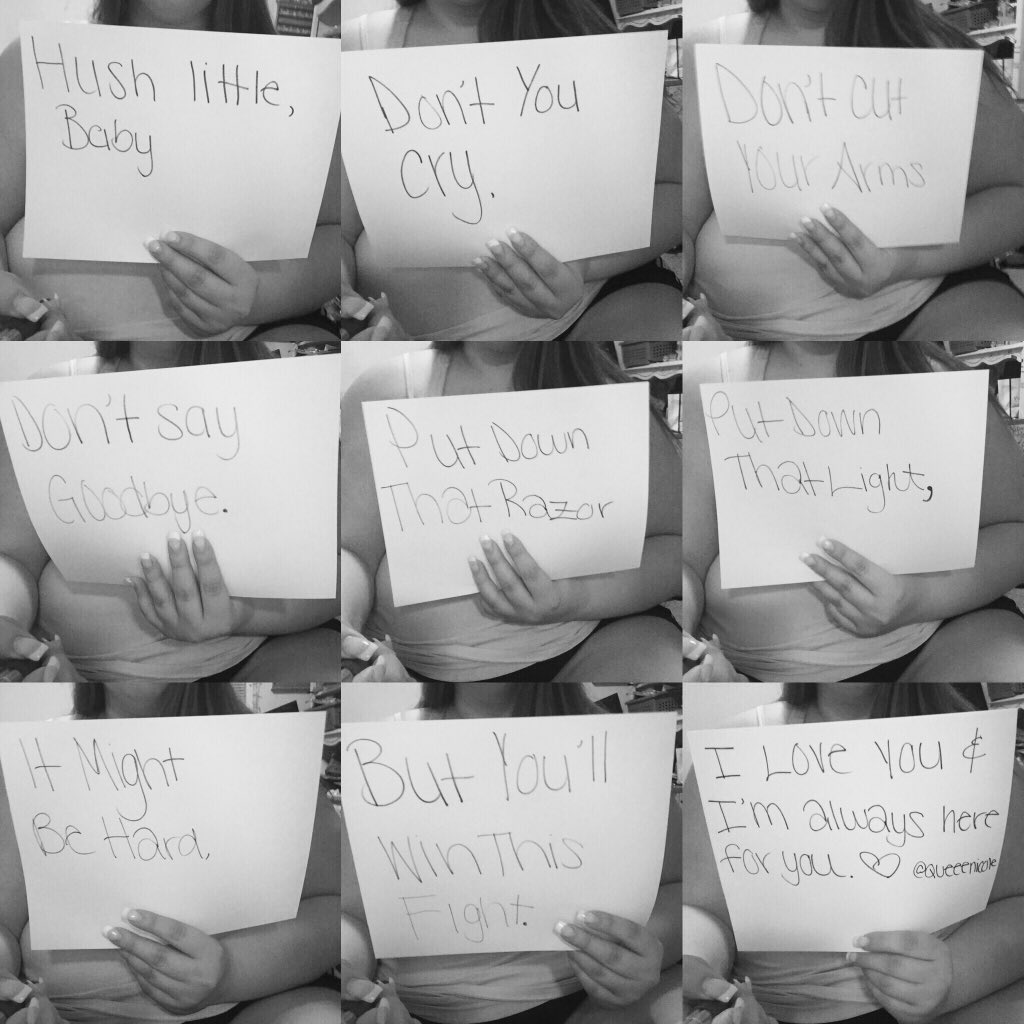 Hush little,
Baby
Don't You
Cry.
Don't Cut
Your Arms
Don't say
Goodbye.
Put Down
That Razor
Put Down
That Light,
It Might
Be Hard,
But You'll
Win This
Fight.
I Love You &
I'm always here
for you. ♡ @queeenicole